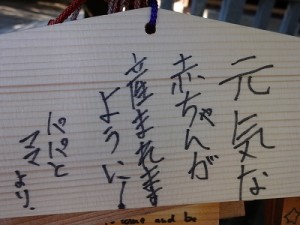 元気な
赤ちゃんが
産まれます
ように!
パパと
ママ
より.
come and be